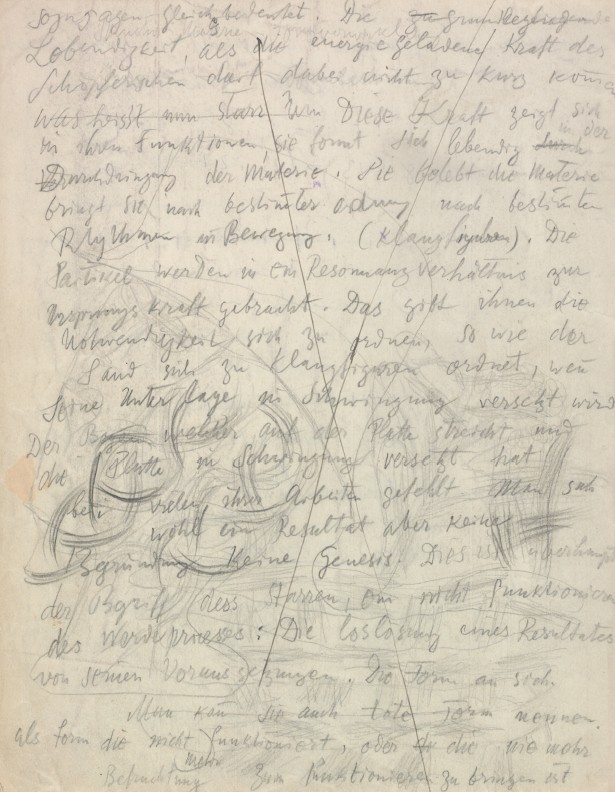 sozusagen gleichbedeutet. Die zu grundliegende
Lebendigkeit, als die energiegeladene Kraft des
Schöpferischen darf dabei nicht zu kurz kommen
was heisst nun starr Diese Kraft zeigt sich
in ihren Funktionen, sie formt sich lebendig in der
Durchdringung der Materie. Sie belebt die Materie
bringt sie nach bestimter ordnung nach bestimten
Rhythmen in Bewegung. (Klangfiguren). Die
Partikel werden in ein Resonnanzverhältnis zur
Ursprungskraft gebracht. Das gibt ihnen die
Notwendigkeit sich zu ordnen, so wie der
Sand sich zu Klangfiguren ordnet, wen
seine Unterlage in Schwingung versetzt wird
Der Bogen welcher auf der Platte streicht und
die Platte in Schwingung versetzt hat
bei vielen ihrer Arbeiten gefehlt. Man sah
wohl ein Resultat aber keine
Begründung keine Genesis. Dies ist überhaupt
der Begriff des Starren, ein nicht funktionieren
des Werdeprocesses: Die loslösung eines Resultates
von seinen Voraussetzungen. Die Form an sich
Man kan sie auch tote Form nennen.
als Form die nicht funktioniert, oder die nie mehr
mehr
Befruchtung zum funktionieren zu bringen ist